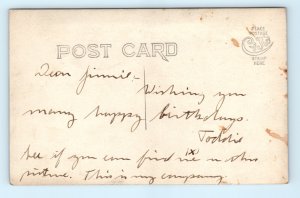 POST CARD
PLACE
POSTAGE
STAMP
HERE
Dear Jimmie -
Wishing you
many happy birthdays.
Toddie
see if you can find me (x) in this
picture. This is my company